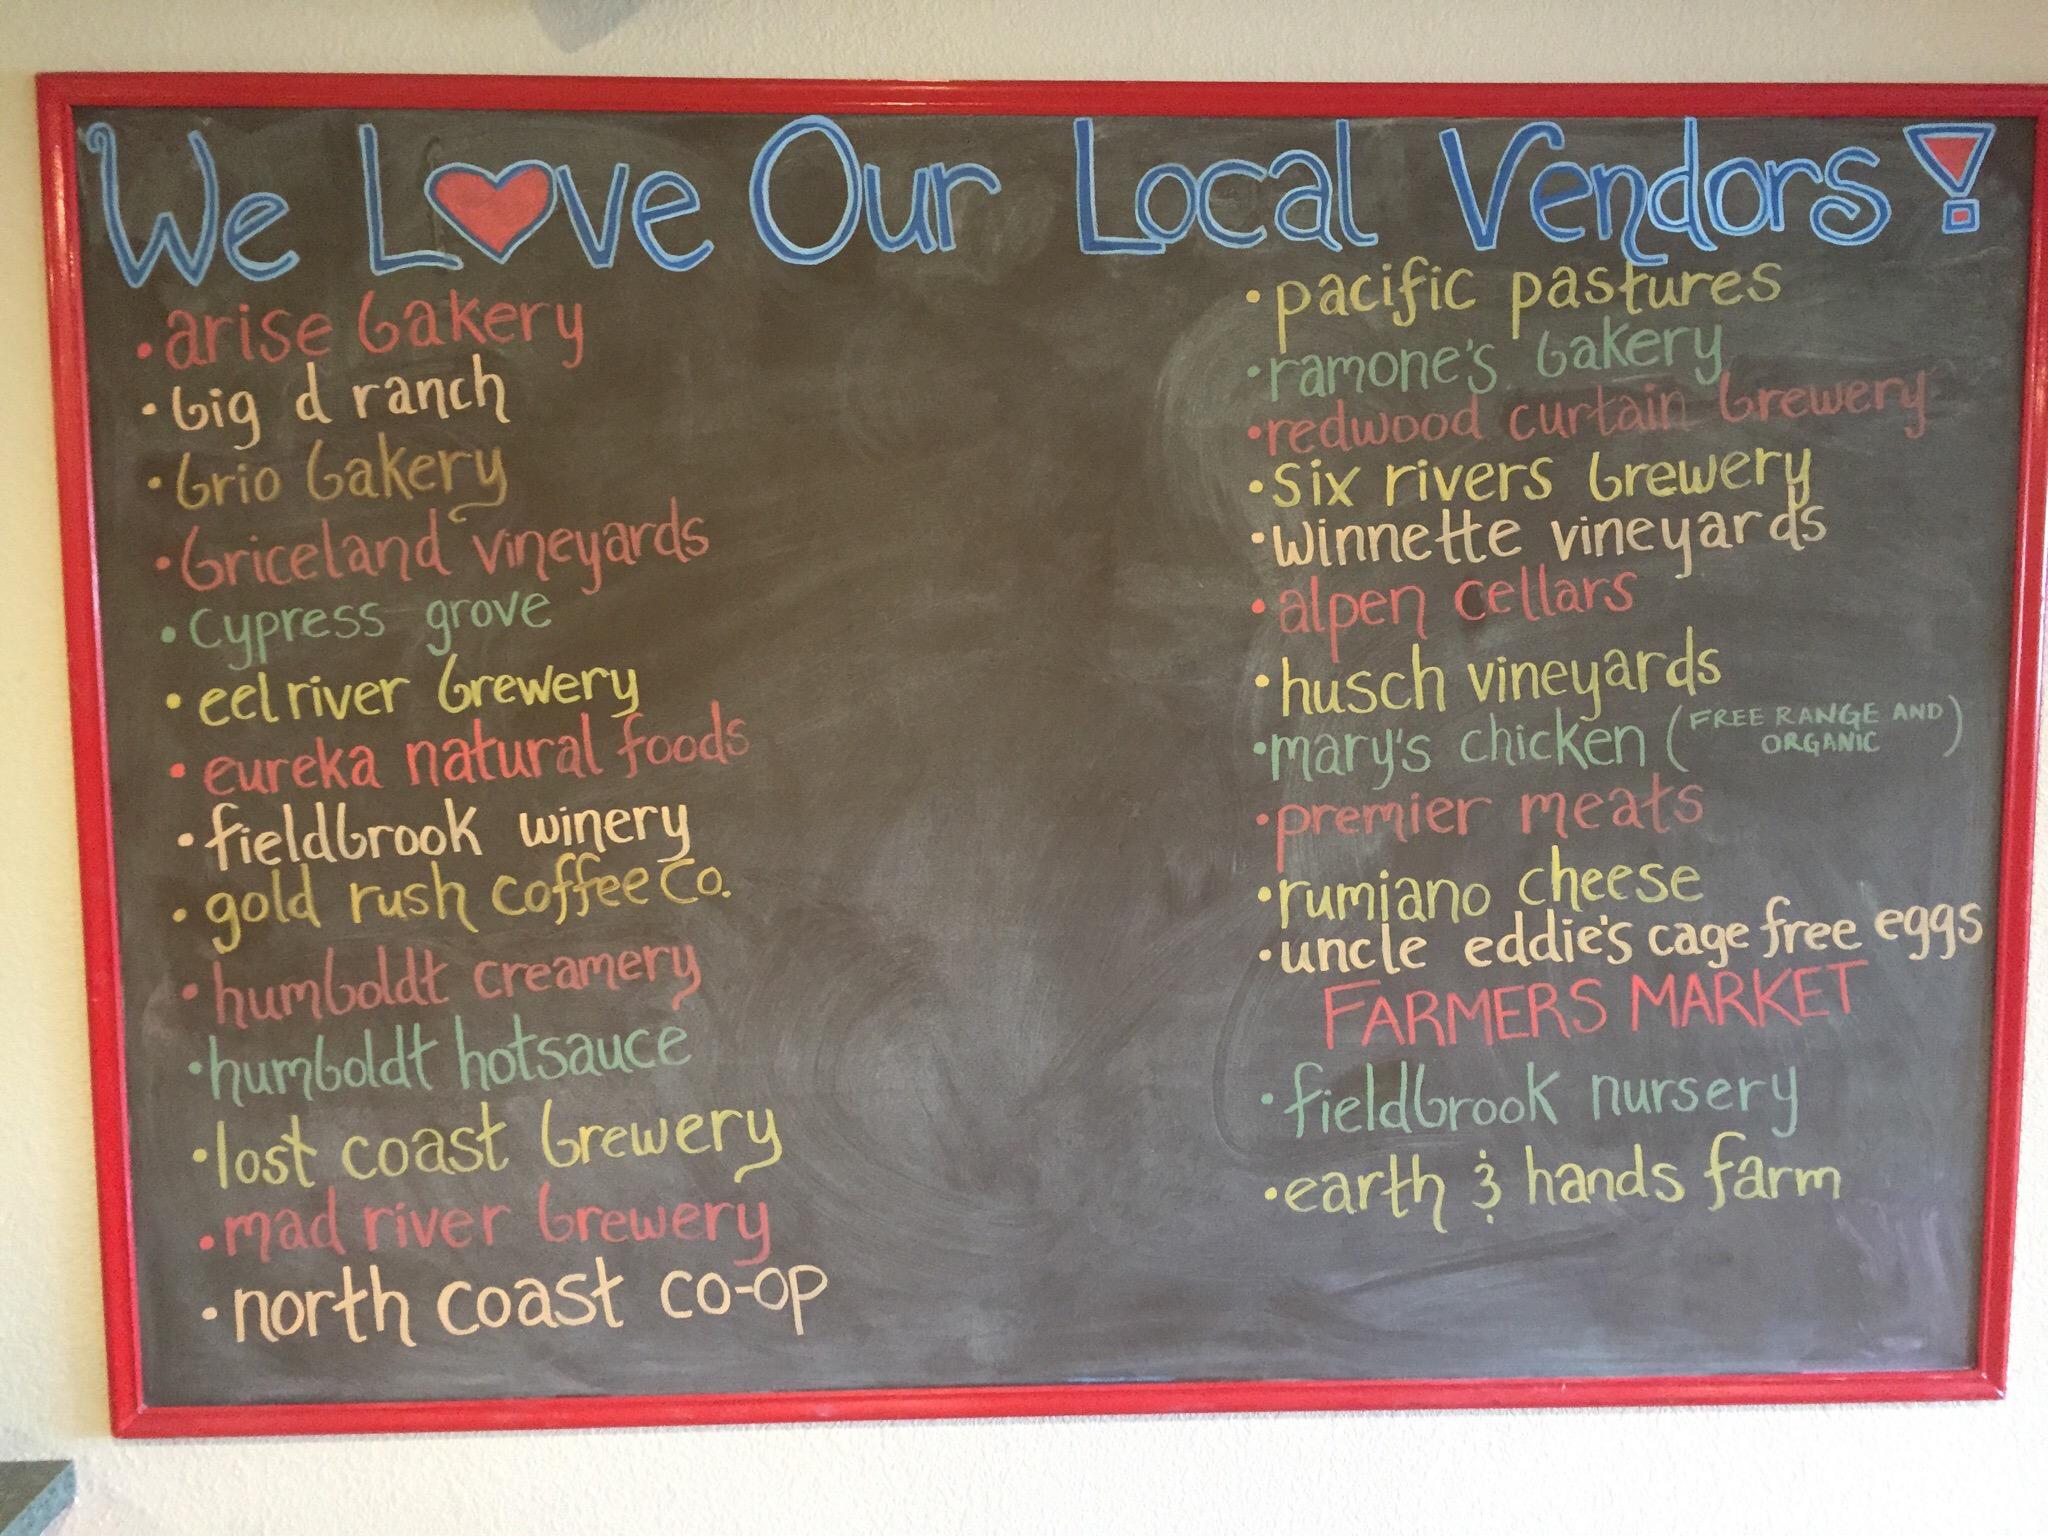 We Love Our Local Vendors!
• arise bakery
• big d ranch
• brio bakery
• briceland vineyards
• cypress grove
• eel river brewery
• eureka natural foods
• fieldbrook winery
• gold rush coffee co.
• humboldt creamery
• humboldt hotsauce
• lost coast brewery
• mad river brewery
• north coast co-op
• pacific pastures
• ramone's bakery
• redwood curtain brewery
• six rivers brewery
• winnette vineyards
• alpen cellars
• husch vineyards
• mary's chicken (FREE RANGE AND
ORGANIC)
• premier meats
• rumiano cheese
• uncle eddie's cage free eggs
FARMERS MARKET
• fieldbrook nursery
• earth & hands farm